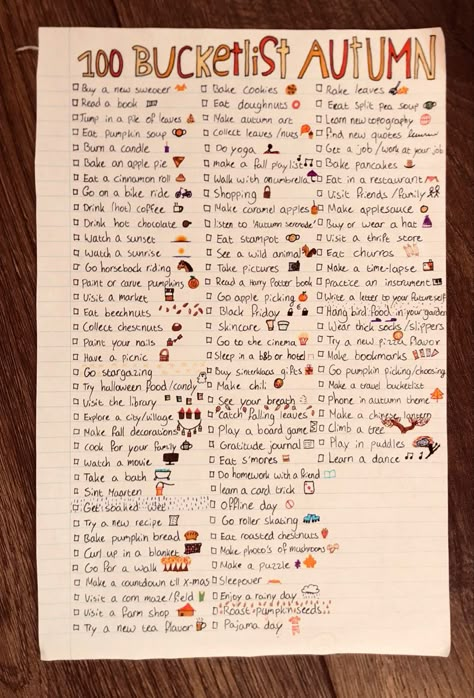 100 BUCKETLIST AUTUMN
Buy a new sweater
Read a book
Jump in a pile of leaves
Eat pumpkin soup
Burn a candle
Bake an apple pie
Eat a cinnamon roll
Go on a bike ride
Drink (hot) coffee
Drink hot chocolate
Watch a sunset
Watch a sunrise
Go horseback riding
Paint or carve pumpkins
Visit a market
Eat beechnuts
Collect chestnuts
Paint your nails
Have a picnic
Go stargazing
Try halloween food/candy
Visit the library
Explore a city/village
Make fall decorations
Cook for your family
Watch a movie
Take a bath
Sint Maarten
Get soaked wet
Try a new recipe
Bake pumpkin bread
Curl up in a blanket
Go for a walk
Make a countdown till x-mas
Visit a corn maze/field
Visit a farm shop
Try a new tea flavor
Bake cookies
Eat doughnuts
Make autumn art
Collect leaves/nuts
Do yoga
Make a fall playlist
Walk with an umbrella
Shopping
Make caramel apples
listen to 'Autumn serenade'
Eat stampot
See a wild animal
Take pictures
Read a Harry Potter book
Go apple picking
Black Friday
Skincare
Go to the cinema
Sleep in a b&b or hotel
Buy sinterklaas gifts
Make chili
See your breath
Catch falling leaves
Play a board game
Gratitude journal
Eat s'mores
Do homework with a friend
learn a card trick
Offline day
Go roller skating
Eat roasted chestnuts
Make photo's of mushrooms
Make a puzzle
Sleepover
Enjoy a rainy day
Roast pumpkinseeds
Pajama day
Rake leaves
Eeat split pea soup
Learn new topography
Find new quotes
Get a job/work at your job
Bake pancakes
Eat in a restaurant
Visit friends/family
Make applesauce
Buy or wear a hat
Visit a thrift store
Eat churros
Make a time-lapse
Practice an instrument
Write a letter to your future self
Hang bird food in your garden
Wear thick socks/slippers
Try a new pizza flavor
Make bookmarks
Go pumpkin picking/choosing
Make a travel bucketlist
Phone in autumn theme
Make a chinese lantern
Climb a tree
Play in puddles
Learn a dance